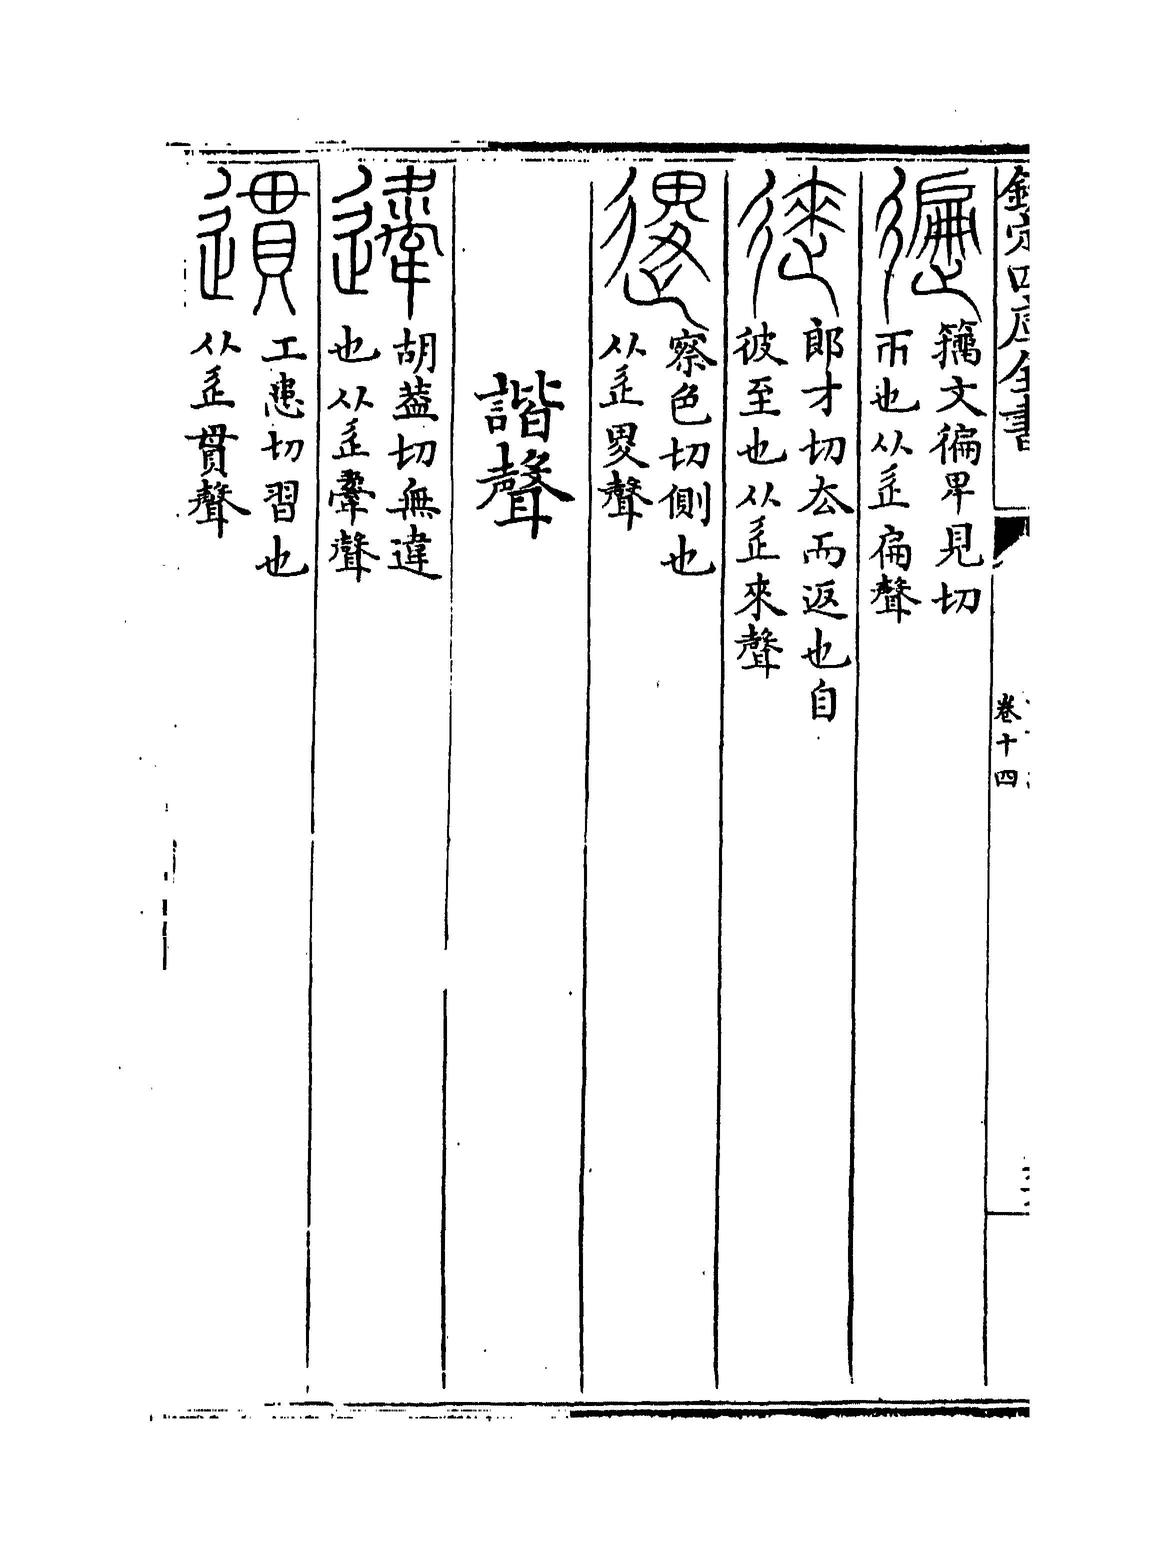 欽定四庫全書
卷十四
遍
籒文徧卑見切
帀也从辵扁聲
逨
郎才切厺而返也自
彼至也从辵來聲
察色切側也
从辵畟聲
諧聲
胡葢切無違
也从辵䡔聲
遦
工患切習也
从辵貫聲